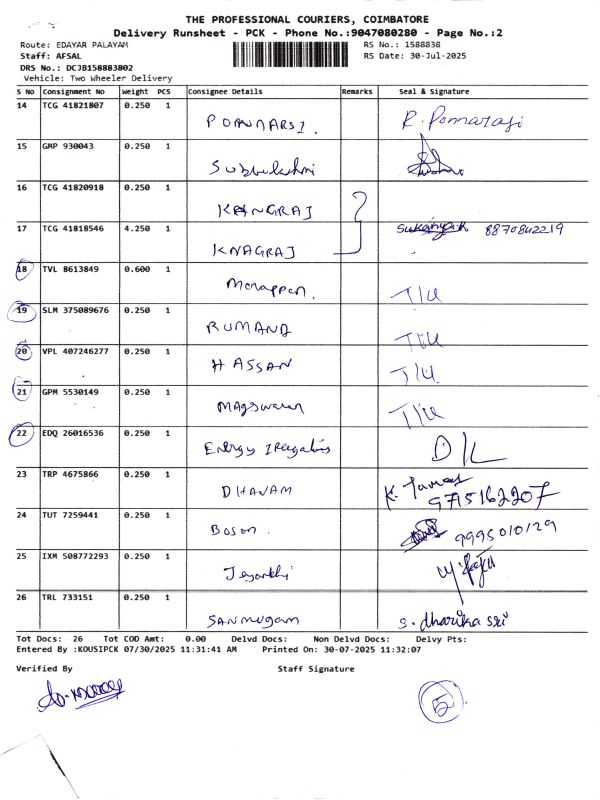 THE PROFESSIONAL COURIERS, COIMBATORE
Delivery Runsheet - PCK - Phone No.:9047080280 - Page No.:2
Route: EDAYAR PALAYAM RS No.: 1588838
Staff: AFSAL RS Date: 30-Jul-2025
DRS No.: DCJB158883802
Vehicle: Two Wheeler Delivery
S No Consignment No Weight PCS Consignee Details Remarks Seal & Signature
14 TCG 41821807 0.250 1 PONNARSI. R. Ponnarasi
15 GMP 930043 0.250 1 Subbulakshmi
16 TCG 41820918 0.250 1 KANGRAJ
17 TCG 41818546 4.250 1 KNAGRAJ 8870842219
18 TVL 8613849 0.600 1 T/U
19 SLM 375089676 0.250 1 RUMANA T/U
20 VPL 407246277 0.250 1 HASSAN T/U
21 GPM 5530149 0.250 1 Magswaran T/U
22 EDQ 26016536 0.250 1 Energy D/L
23 TRP 4675866 0.250 1 DHANAM K. 9715162207
24 TUT 7259441 0.250 1 Boson. 9995010129
25 IXM 508772293 0.250 1 Jeyanthi
26 TRL 733151 0.250 1 SANMUGAM S. dharika sri
Tot Docs: 26 Tot COD Amt: 0.00 Delvd Docs: Non Delvd Docs: Delvy Pts:
Entered By :KOUSIPCK 07/30/2025 11:31:41 AM Printed On: 30-07-2025 11:32:07
Verified By Staff Signature
5